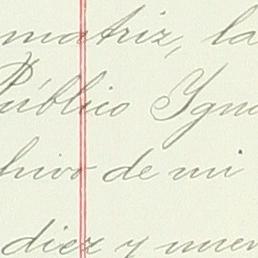 matriz, la
Público Ygna
chivo de mi
diez y nuev